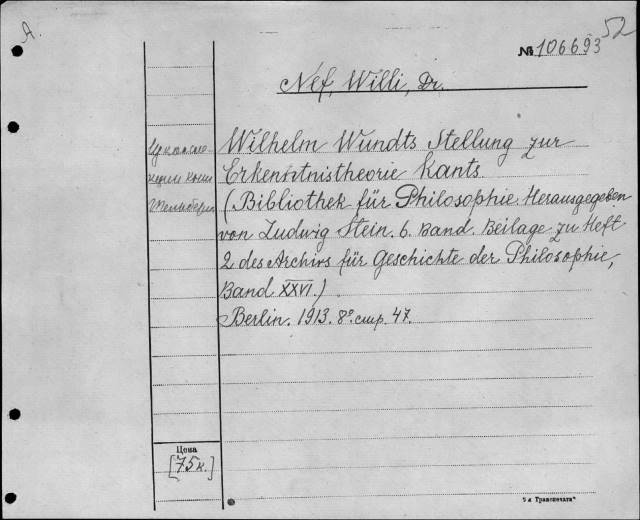 A.
52
№ 106693
Nef, Willi, Dr.
Wilhelm Wundts Stellung zur
Erkenntnistheorie Kants.
(Bibliothek für Philosophie. Herausgegeben
von Ludwig Stein. 6. Band. Beilage zu Heft
2 des Archivs für Geschichte der Philosophie,
Band XXVI.)
Berlin. 1913. 8° стр. 47.
Цена
[75 к.]
5 я Транспечать"